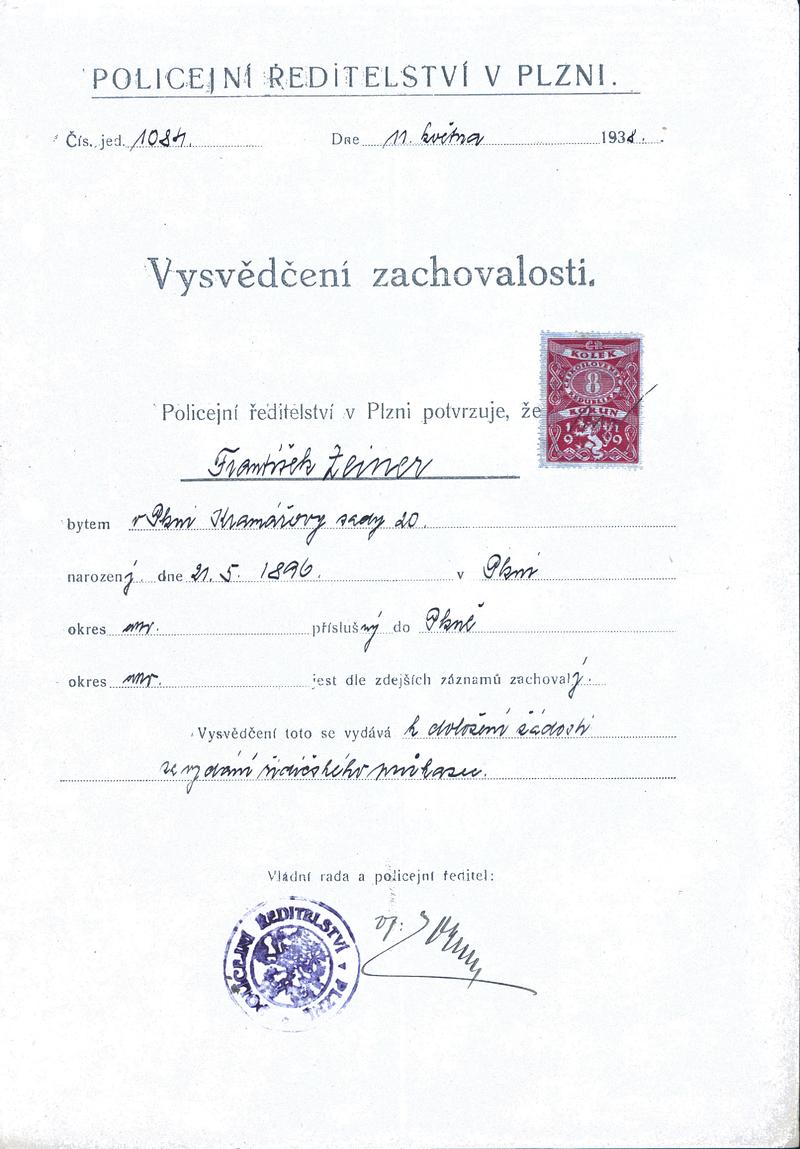 POLICEJNÍ ŘEDITELSTVÍ V PLZNI.
Čís. jed. 1084. Dne 11. května 1938.
Vysvědčení zachovalosti.
ČR
KOLEK
ČESKOSLOVENSKÁ
8
REPUBLIKA
KORUN
Policejní ředitelství v Plzni potvrzuje, že
František Zeiner
bytem v Plzni Kramářovy sady 20.
narozený dne 21. 5. 1896. v Plzni
okres příslušný do Plzně
okres jest dle zdejších záznamů zachovalý.
Vysvědčení toto se vydává k doložení žádosti
za vydání řidičského průkazu.
Vládní rada a policejní ředitel:
POLICEJNÍ ŘEDITELSTVÍ V PLZNI